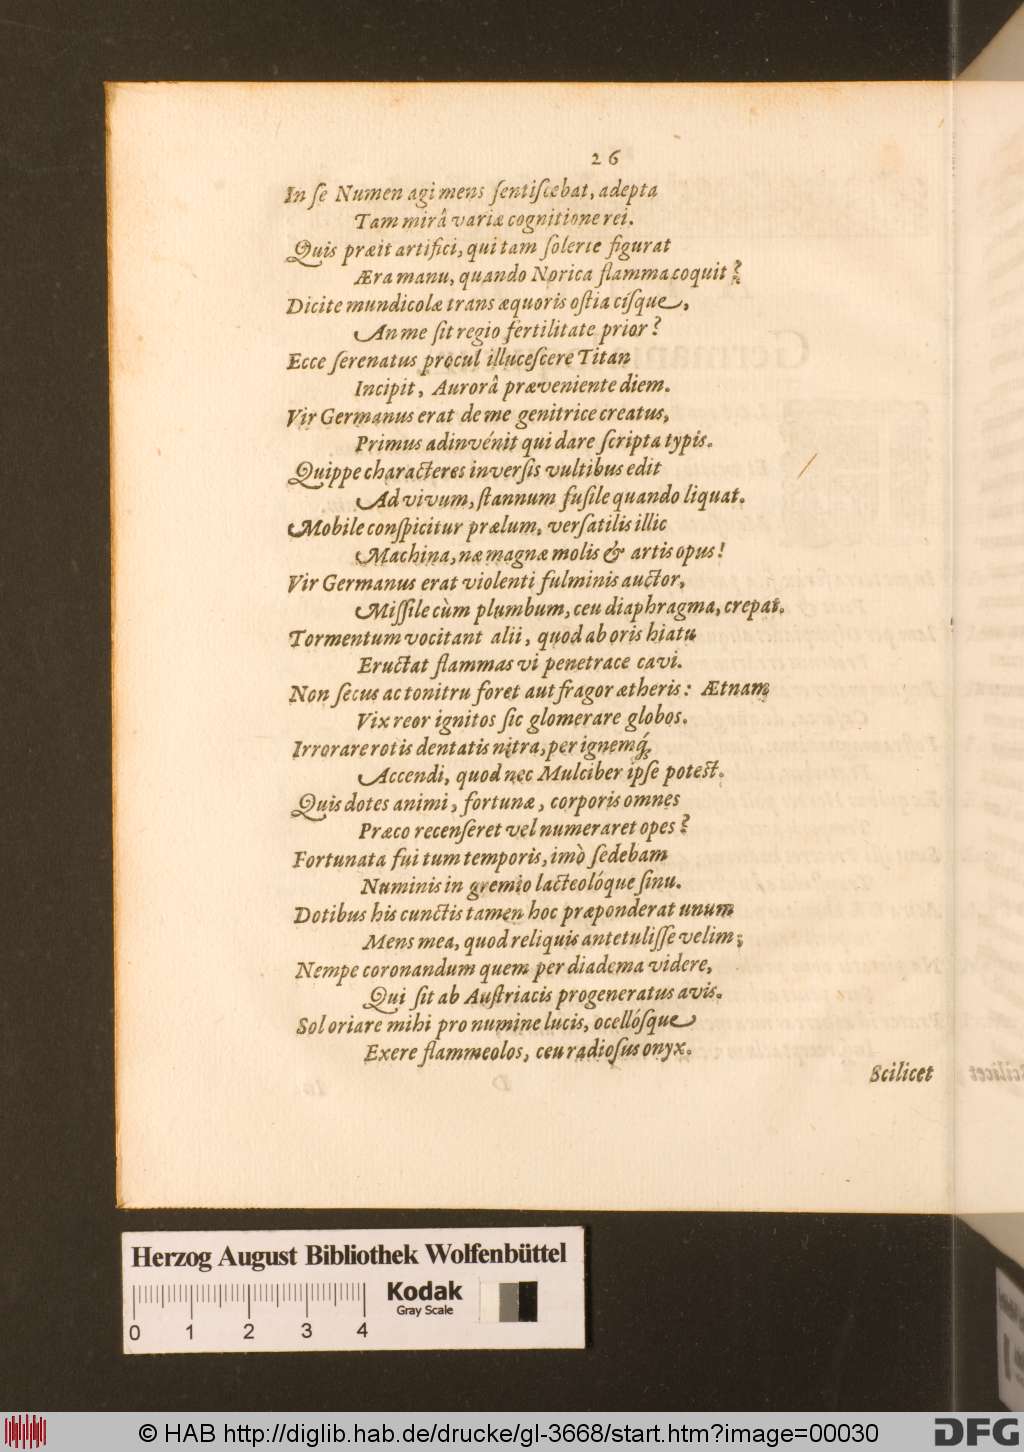 26
In ſe Numen agi mens ſentiſcebat, adepta
Tam mirâ variæ cognitione rei.
Quis præit artifici, qui tam ſolerte figurat
Æra manu, quando Norica flamma coquit?
Dicite mundicolæ trans æquoris oſtia ciſque,
An me ſit regio fertilitate prior?
Ecce ſerenatus procul illuceſcere Titan
Incipit, Aurorâ præveniente diem.
Vir Germanus erat de me genitrice creatus,
Primus adinvénit qui dare ſcripta typis.
Quippe characteres inverſis vultibus edit
Ad vivum, ſtannum fuſile quando liquat.
Mobile conſpicitur prælum, verſatilis illic
Machina, næ magnæ molis & artis opus!
Vir Germanus erat violenti fulminis auctor,
Miſſile cùm plumbum, ceu diaphragma, crepat.
Tormentum vocitant alii, quod ab oris hiatu
Eructat flammas vi penetrace cavi.
Non ſecus ac tonitru foret aut fragor ætheris: Ætnam
Vix reor ignitos ſic glomerare globos.
Irrorare rotis dentatis nitra, per ignemq́;
Accendi, quod nec Mulciber ipſe poteſt.
Quis dotes animi, fortunæ, corporis omnes
Præco recenſeret vel numeraret opes?
Fortunata fui tum temporis, imò ſedebam
Numinis in gremio lacteolóque ſinu.
Dotibus his cunctis tamen hoc præponderat unum
Mens mea, quod reliquis antetuliſſe velim;
Nempe coronandum quem per diadema videre,
Qui ſit ab Auſtriacis progeneratus avis.
Sol oriare mihi pro numine lucis, ocellóſque
Exere flammeolos, ceu radioſus onyx.
Scilicet
Herzog August Bibliothek Wolfenbüttel
Kodak
Gray Scale
0 1 2 3 4
© HAB http://diglib.hab.de/drucke/gl-3668/start.htm?image=00030
DFG